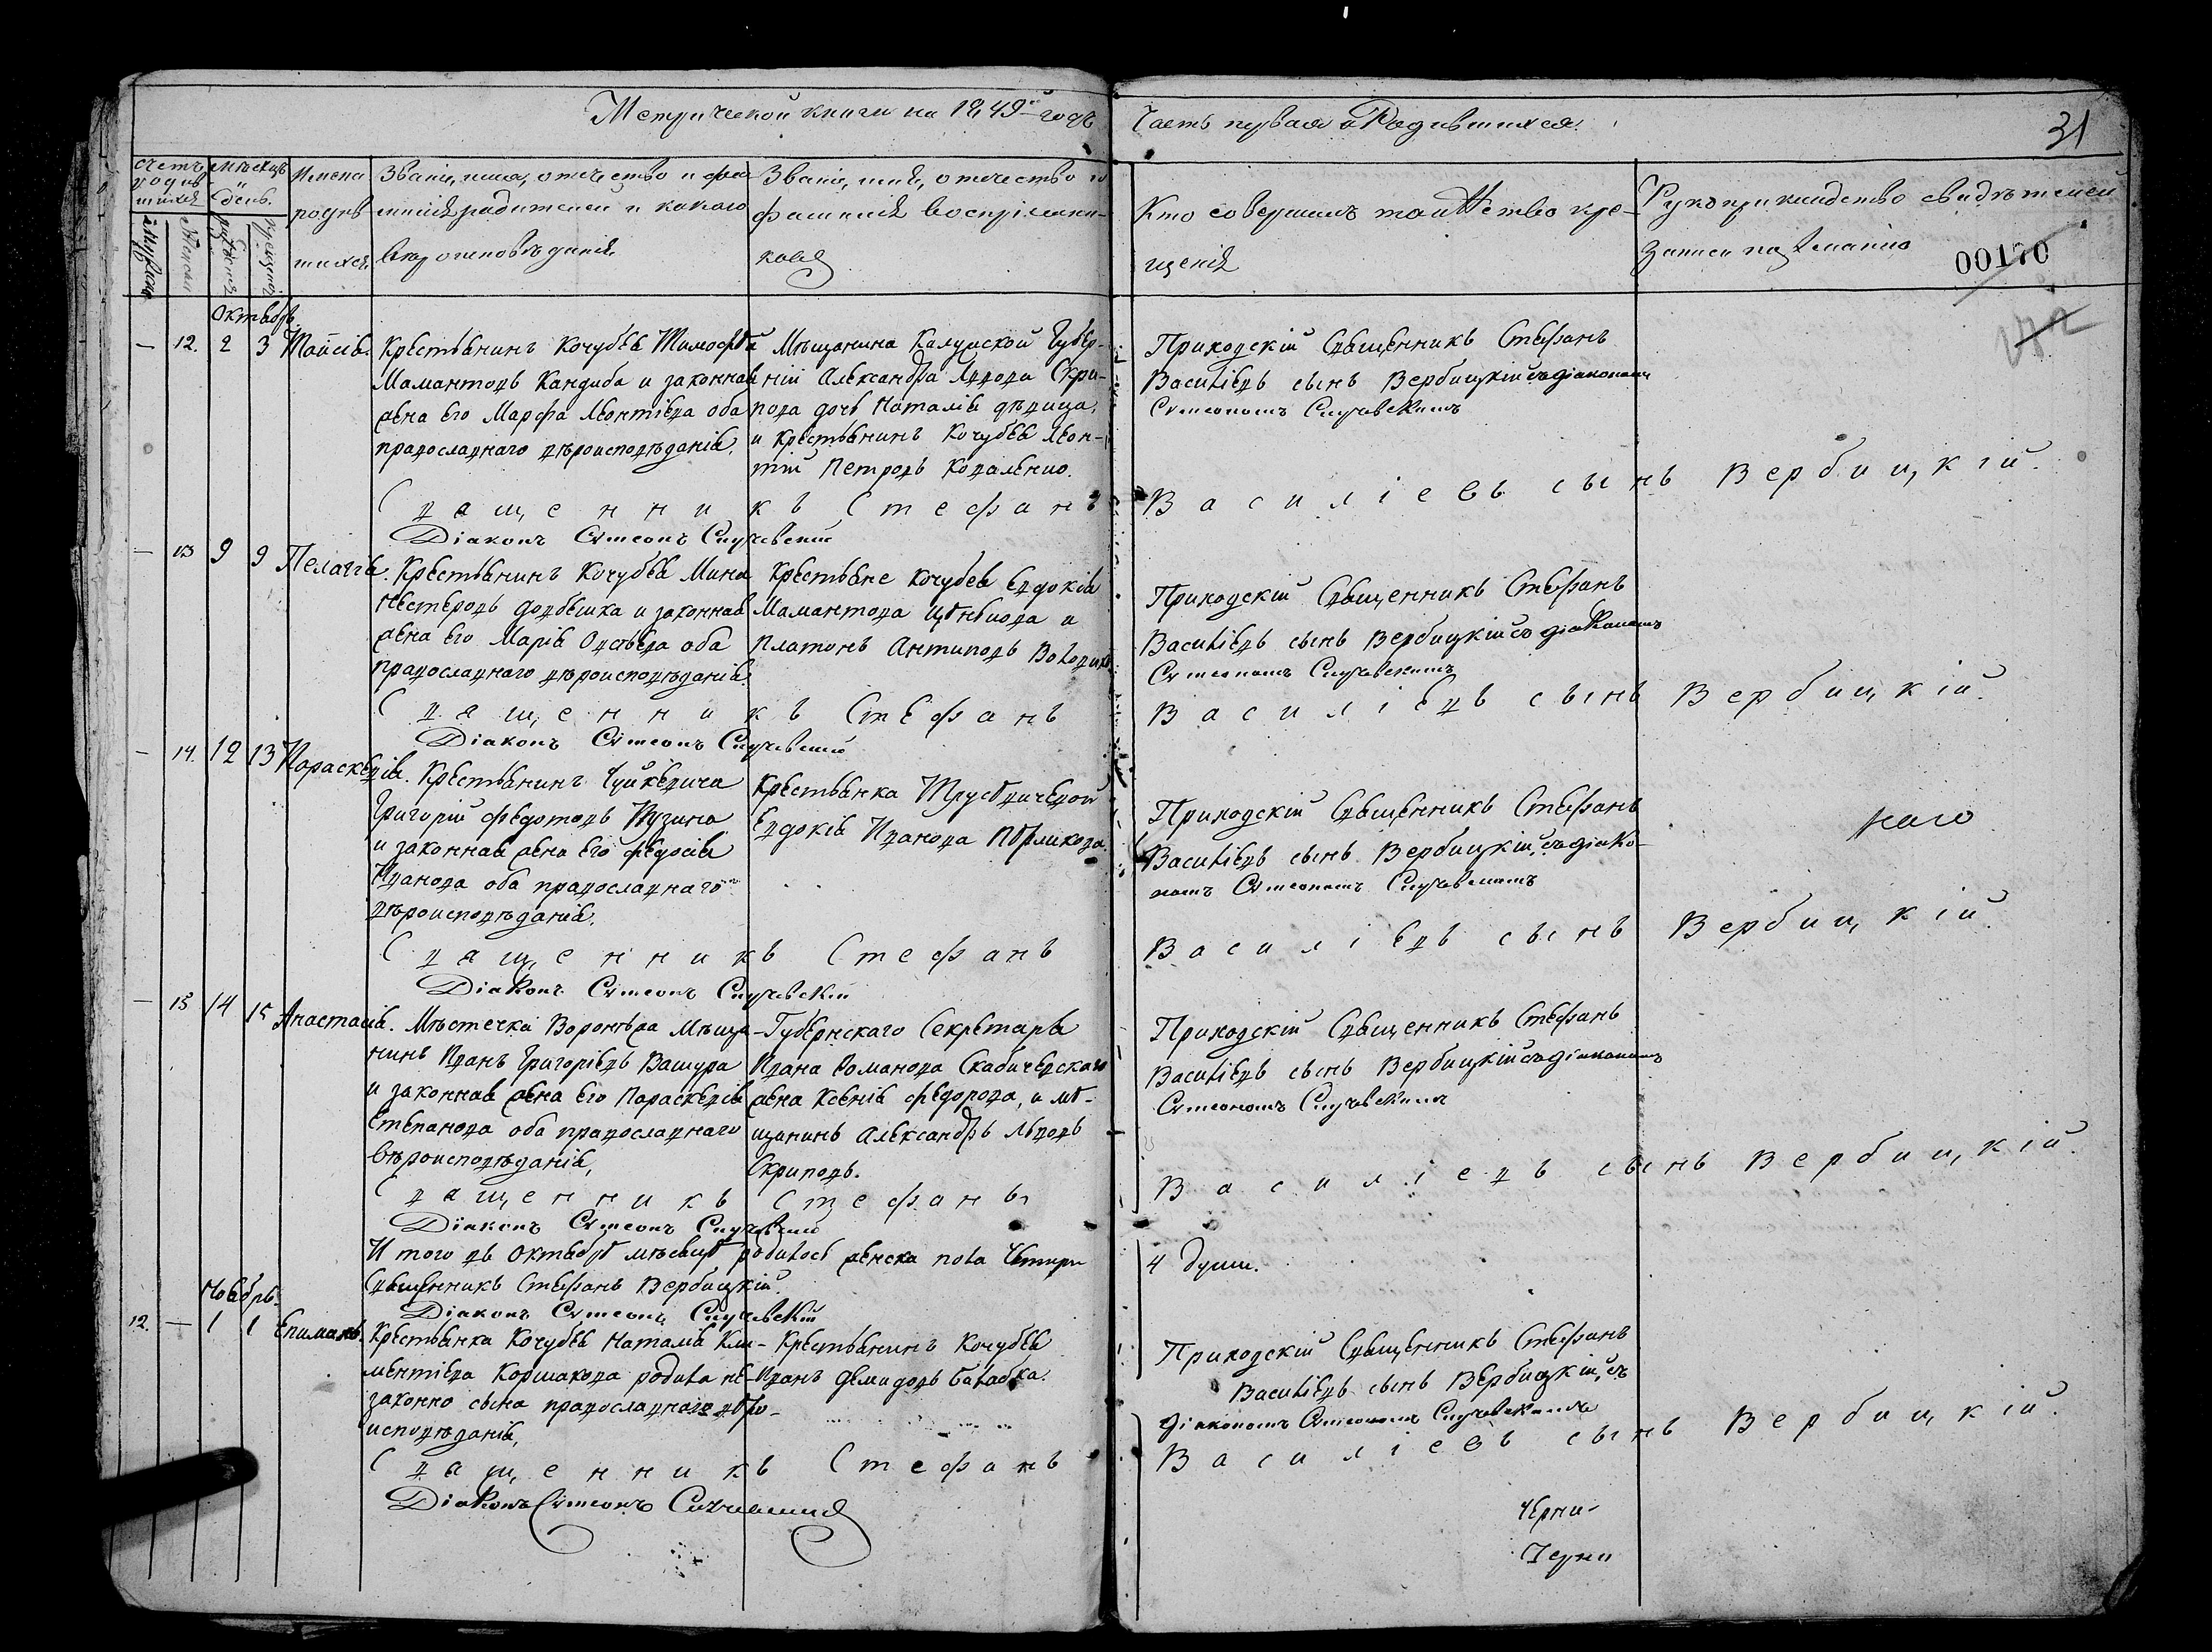 Метрической книги на 1849й годъ
Часть первая о Родившихся.
31
Счетъ родив шихся
Мужеска
Женска
Мѣсяцъ и день.
рожденія
крещенія
Имена родив шихся
Званіе, имя, отечество и фа милія родителей и какого вѣроисповѣданія.
Званіе, имя, отечество и фамилія воспріемни- ковъ
Кто совершалъ таинство кре- щенія
Рукоприкладство свидѣтелей записи по желанію
00170
Октябрь
— 12. 2 3 Таисія.
Крестьянинъ Кочубея Тимофѣй
Мамантовъ Кандиба и законная
жена его Марфа Леонтіева оба
православнаго вѣроисповѣданія.
Мѣщанина Калужской Губер-
ніи Александра Львова Скри-
пова дочь Наталія дѣвица,
и крестьянинъ Кочубея Леон-
тій Петровъ Коваленко.
Приходскій Священникъ Стефанъ
Василіевъ сынъ Вербицкій съ діакономъ
Симеономъ Случевскимъ
Священникъ Стефанъ Василіевъ сынъ Вербицкій.
Діаконъ Симеонъ Случевскій
— 13 9 9 Пелагія.
Крестьянинъ Кочубея Мина
Нестеровъ Довбешка и законная
жена его Марія Овсѣева оба
православнаго вѣроисповѣданія.
Крестьяне Кочубея Евдокія
Мамантова и
Платонъ Антиповъ
Приходскій Священникъ Стефанъ
Василіевъ сынъ Вербицкій съ діакономъ
Симеономъ Случевскимъ
Священникъ Стефанъ Василіевъ сынъ Вербицкій.
Діаконъ Симеонъ Случевскій
— 14. 12 13 Параскевія.
Крестьянинъ Чуйкевича
Григорій Федотовъ Тузина
и законная жена его Федосія
Иванова оба православнаго
вѣроисповѣданія.
Крестьянка
Евдокія Иванова
Приходскій Священникъ Стефанъ
Василіевъ сынъ Вербицкій, съ діако-
номъ Симеономъ Случевскимъ
Священникъ Стефанъ Василіевъ сынъ Вербицкій.
Діаконъ Симеонъ Случевскій
— 15 14 15 Анастасія.
Мѣстечка Воронѣжа Мѣща-
нинъ Иванъ Григоріевъ Вашура
и законная жена его Параскевія
Степанова оба православнаго
вѣроисповѣданія,
Губернскаго Секретаря
Ивана Романова Скабичевскаго
жена Ксенія Федорова, и мѣ-
щанинъ Александръ Львовъ
Скриповъ.
Приходскій Священникъ Стефанъ
Василіевъ сынъ Вербицкій съ діакономъ
Симеономъ Случевскимъ
Священникъ Стефанъ Василіевъ сынъ Вербицкій.
Діаконъ Симеонъ Случевскій
И того въ октябрѣ мѣсяцѣ родилось женска пола четыри 4 души.
Священникъ Стефанъ Вербицкій.
Діаконъ Симеонъ Случевскій
Ноябрь.
12. — 1 1
Крестьянка Кочубея Наталія Кли-
ментіева Коршакова родила не-
законно сына православнаго вѣро-
исповѣданія,
Крестьянинъ Кочубея
Иванъ Демидовъ Балабка.
Приходскій Священникъ Стефанъ
Василіевъ сынъ Вербицкій, съ
діакономъ Симеономъ Случевскимъ
Священникъ Стефанъ Василіевъ сынъ Вербицкій.
Діаконъ Симеонъ Случевскій
Черни-
Черни